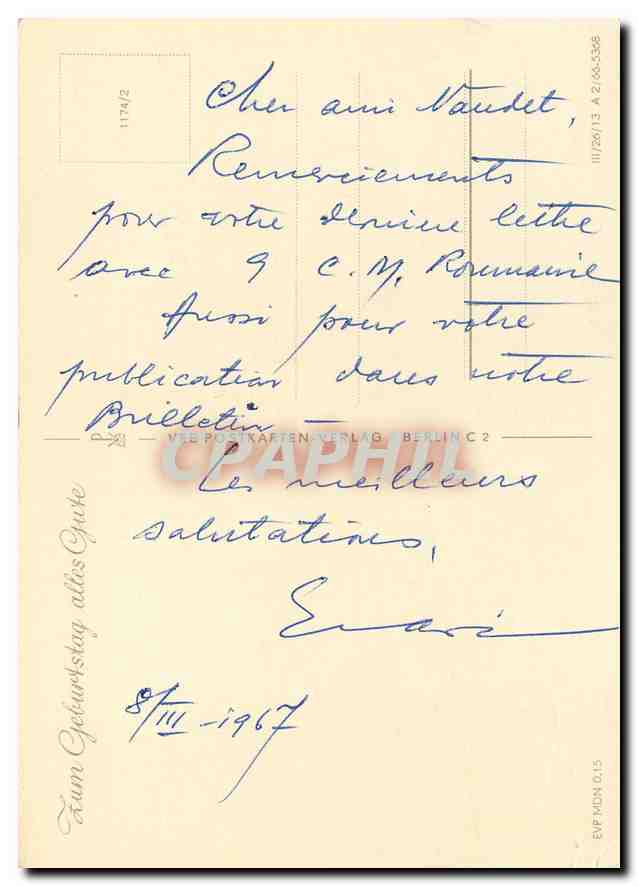 1174/2
III/26/13 A 2/66-5368
Cher ami Naudet,
Remerciements
pour votre derniere lettre
avec 9 C.M. Roumanie
Aussi pour votre
publication dans votre
Bulletin –
VEB POSTKARTEN-VERLAG BERLIN C 2
CPAPHIL
Les meilleurs
salutations,
8/III-1967
Zum Geburtstag alles Gute
EVP MDN 0,15